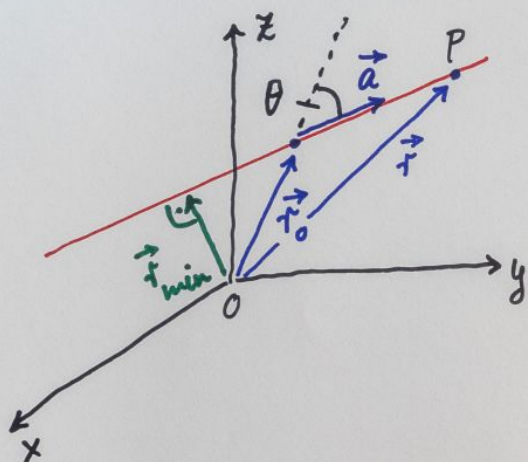 z
P
θ
a⃗
r⃗
r⃗₀
r⃗min
O
y
x